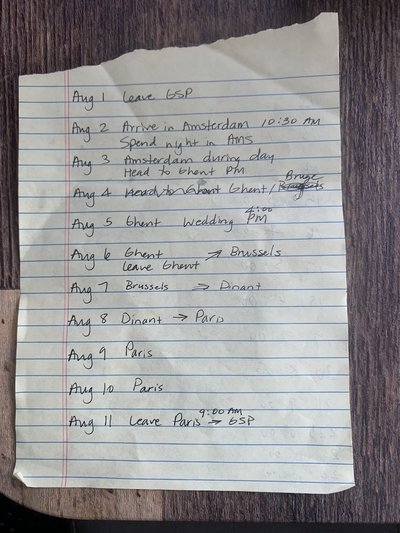 Aug 1 Leave GSP
Aug 2 Arrive in Amsterdam 10:30 AM
Spend night in AMS
Aug 3 Amsterdam during day
Head to Ghent PM
Bruge
Aug 4 Head to Ghent Ghent/
4:00
Aug 5 Ghent Wedding PM
Aug 6 Ghent → Brussels
Leave Ghent
Aug 7 Brussels → Dinant
Aug 8 Dinant → Paris
Aug 9 Paris
Aug 10 Paris
9:00 AM
Aug 11 Leave Paris → GSP